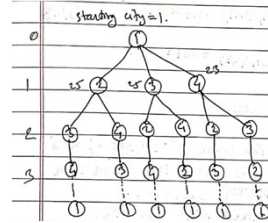 starting city=1.
0 1
1 25 2 25 3 23 4
2 3 4 2 4 2 3
3 4 3 4 2 3 2
1 1 1 1 1 1